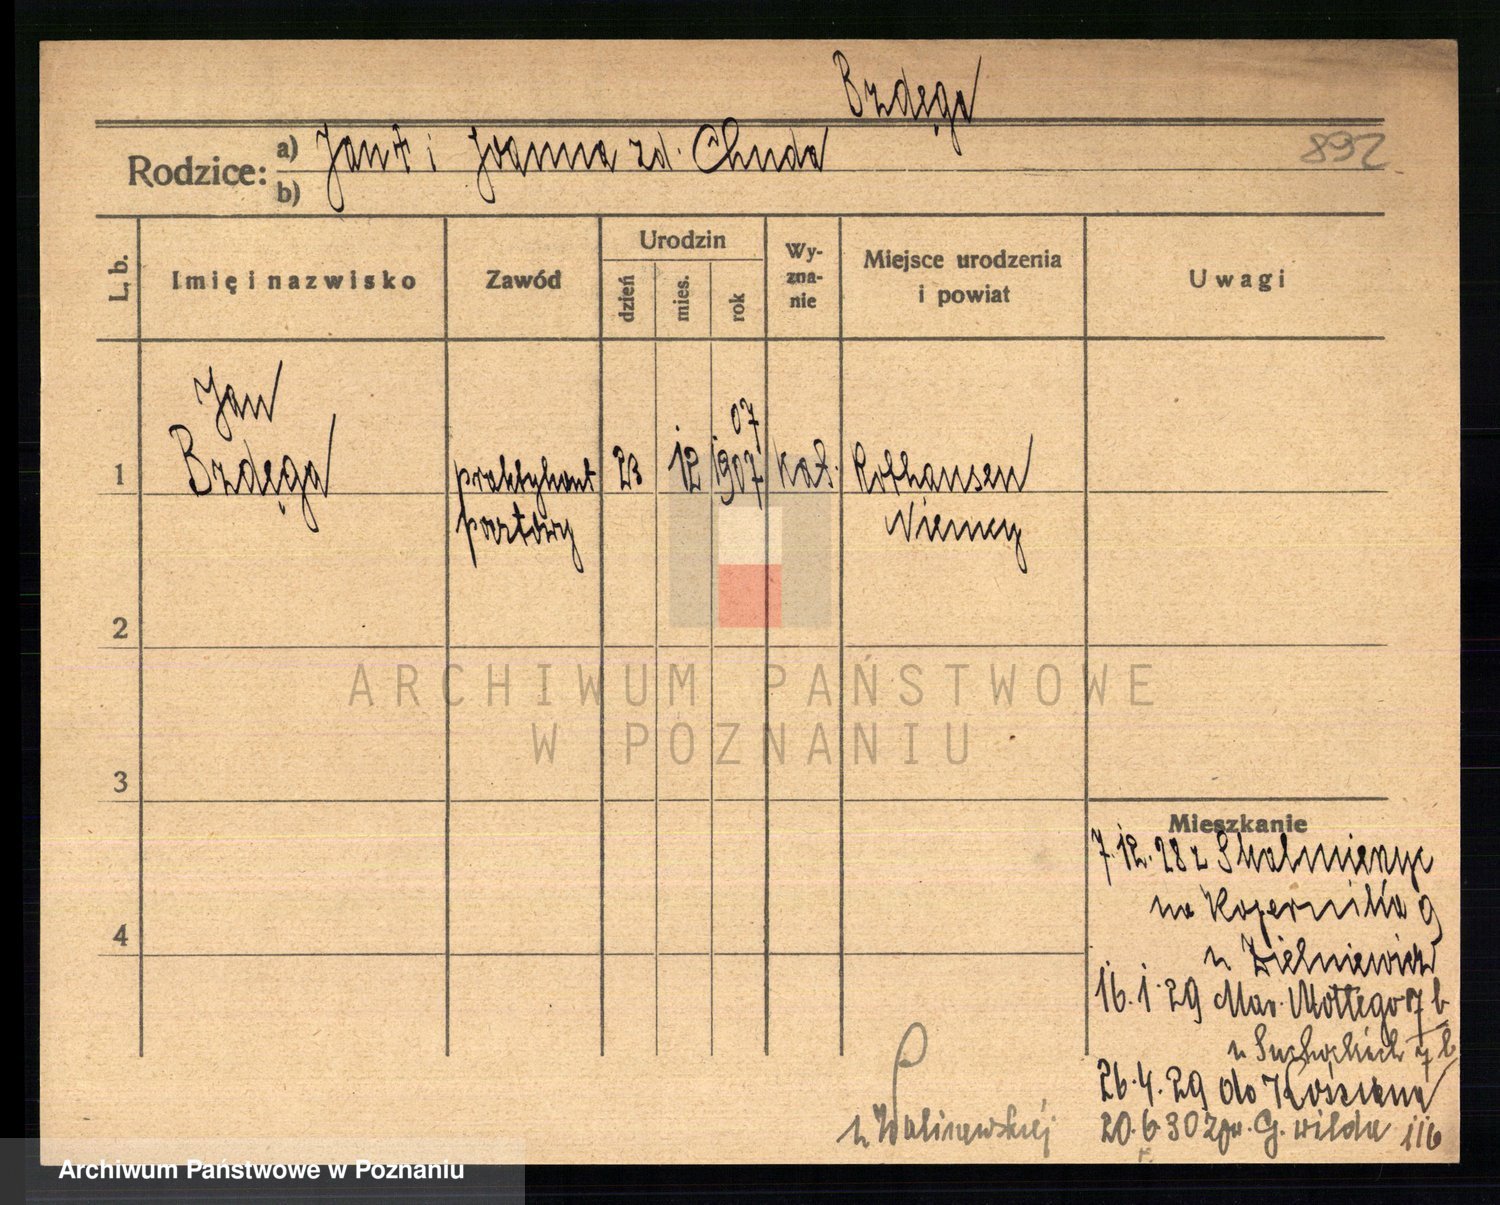 Brzdęga
892
Rodzice: a) Jan † i Joanna zd. Chuda
b)
L. b.
Imię i nazwisko
Zawód
Urodzin
dzień
mies.
rok
Wy-
zna-
nie
Miejsce urodzenia
i powiat
Uwagi
Jan
07
1 Brzdęga praktykant 23 12 1907 kat. Rothausen
pocztowy Niemcy
2
ARCHIWUM PAŃSTWOWE
W POZNANIU
3
Mieszkanie
7.12.28 z Skalmierzyc
na Kopernika 9
4
u Zielniewicz
16.1.29 Mar. Mottego 7 b
u Suchockich 7 b
26.4.29 do Kościana
20.6.30 G. Wilda 116
u Waliszewskiej
Archiwum Państwowe w Poznaniu